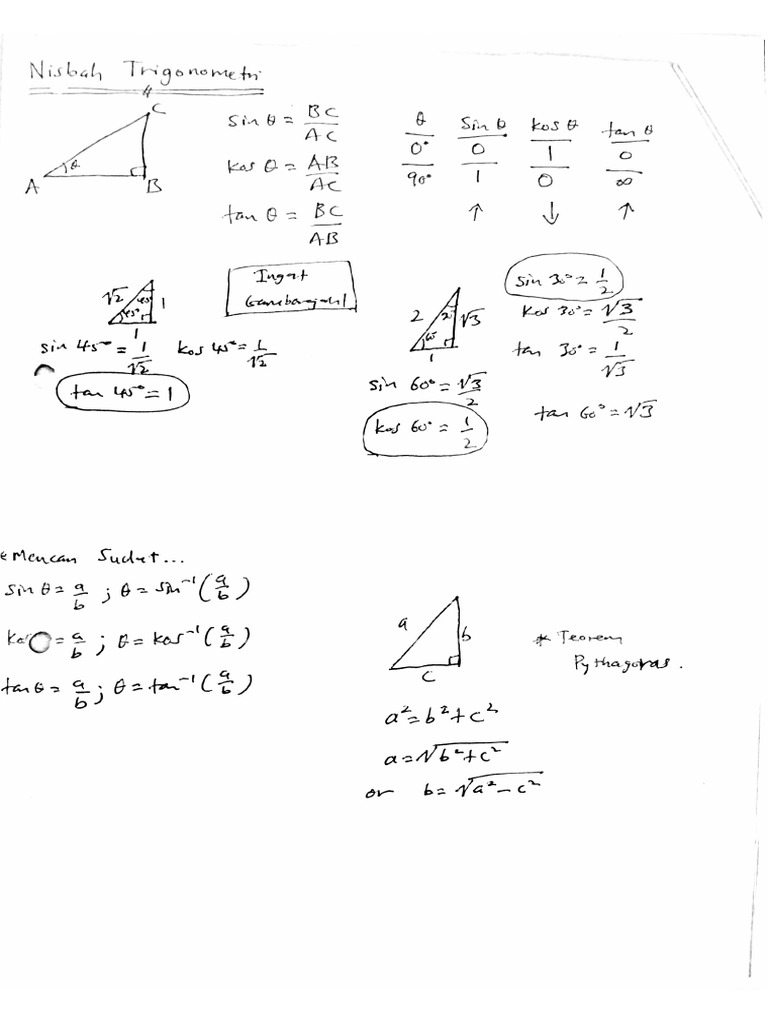 Nisbah Trigonometri
C
θ
A
B
sin θ = BC/AC
kos θ = AB/AC
tan θ = BC/AB
θ sin θ kos θ tan θ
0° 0 1 0
90° 1 0 ∞
↑ ↓ ↑
√2 45° 1
45°
1
Ingat
sin 45° = 1/√2 kos 45° = 1/√2
tan 45° = 1
2 30° √3
60°
1
sin 60° = √3/2
kos 60° = 1/2
sin 30° = 1/2
kos 30° = √3/2
tan 30° = 1/√3
tan 60° = √3
Mencari Sudut...
sin θ = a/b ; θ = sin⁻¹(a/b)
= a/b ; θ = kos⁻¹(a/b)
tan θ = a/b ; θ = tan⁻¹(a/b)
a
b
c
* Teorem
Pythagoras.
a² = b² + c²
a = √b² + c²
or b = √a² - c²